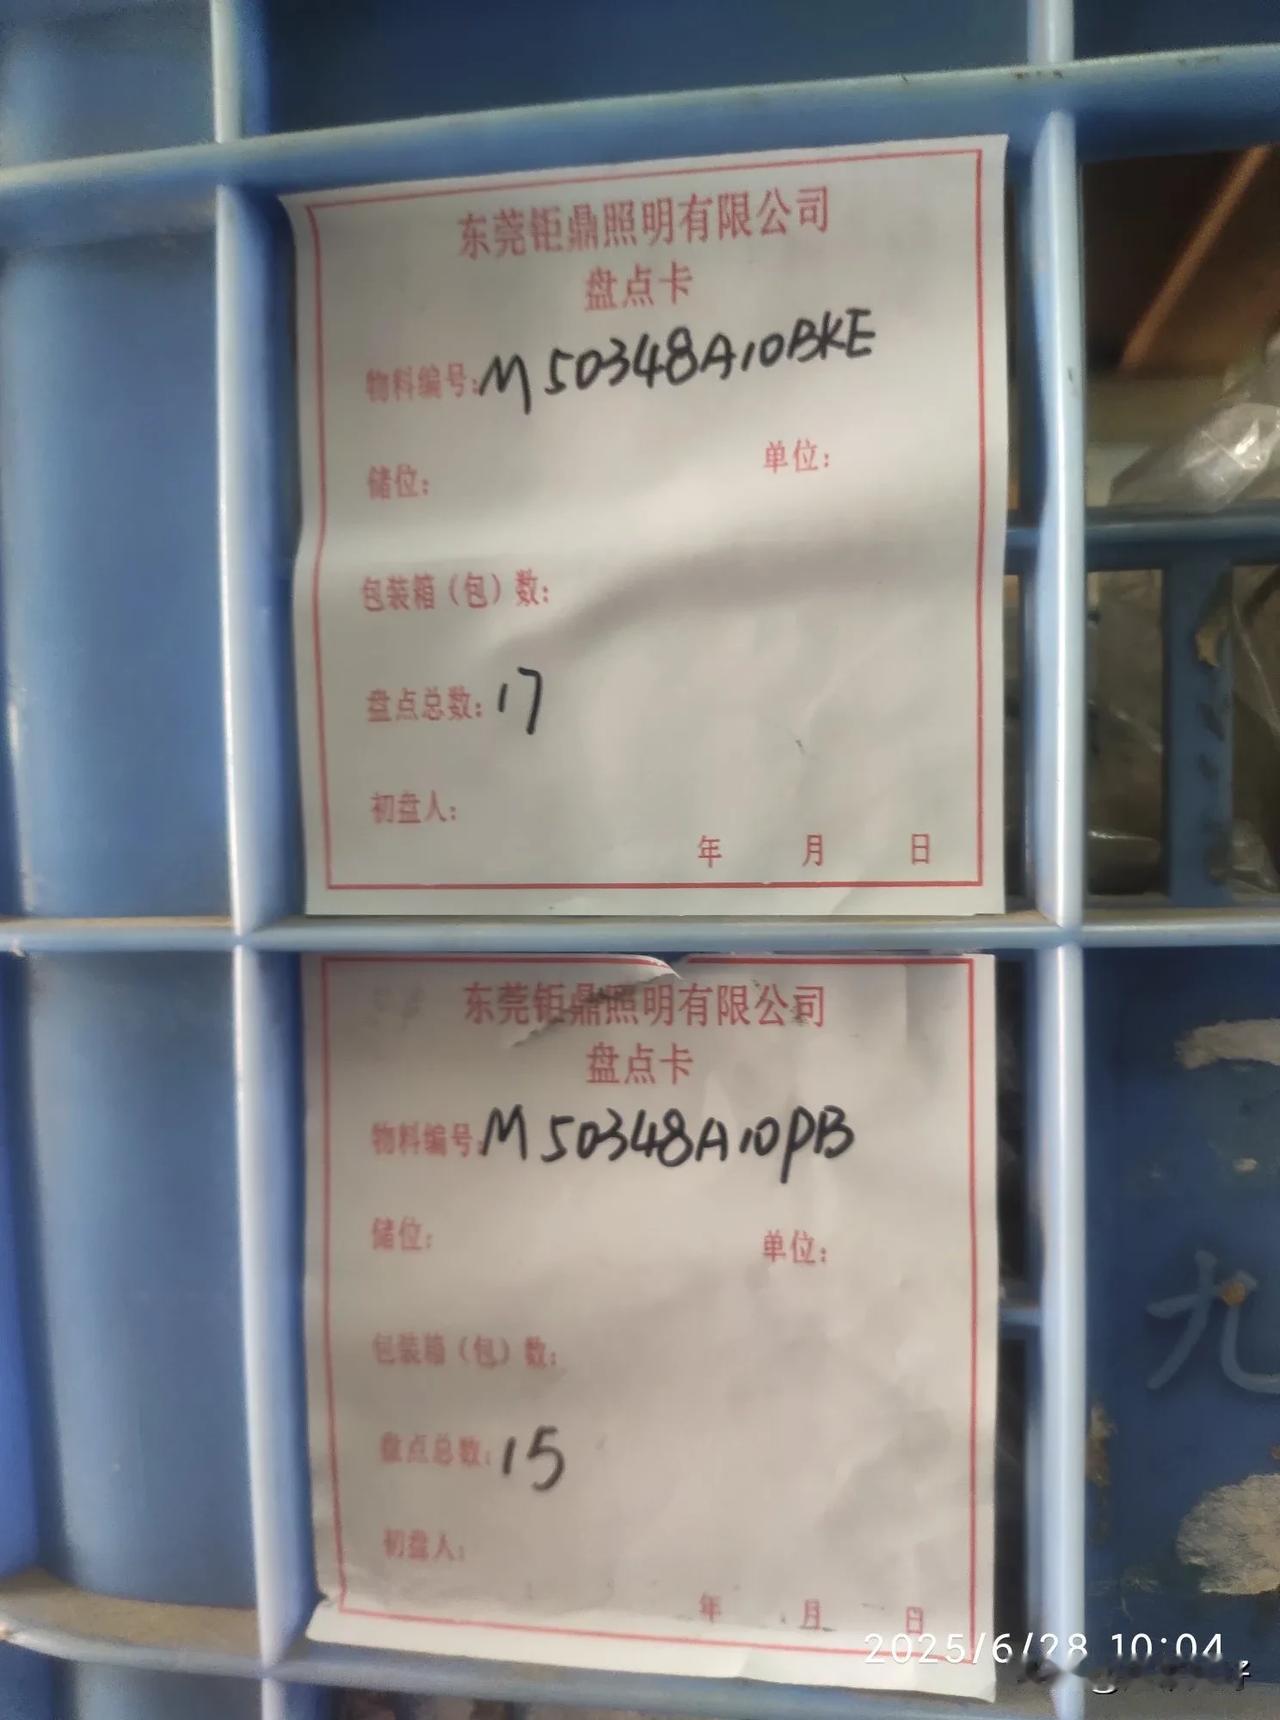 东莞钜鼎照明有限公司
盘点卡
物料编号:M50348A10BKE
储位: 单位:
包装箱（包）数:
盘点总数:17
初盘人:
年 月 日
东莞钜鼎照明有限公司
盘点卡
物料编号:M50348A10PB
储位: 单位:
包装箱（包）数:
盘点总数:15
初盘人:
年 月 日
九
2025/6/28 10:04